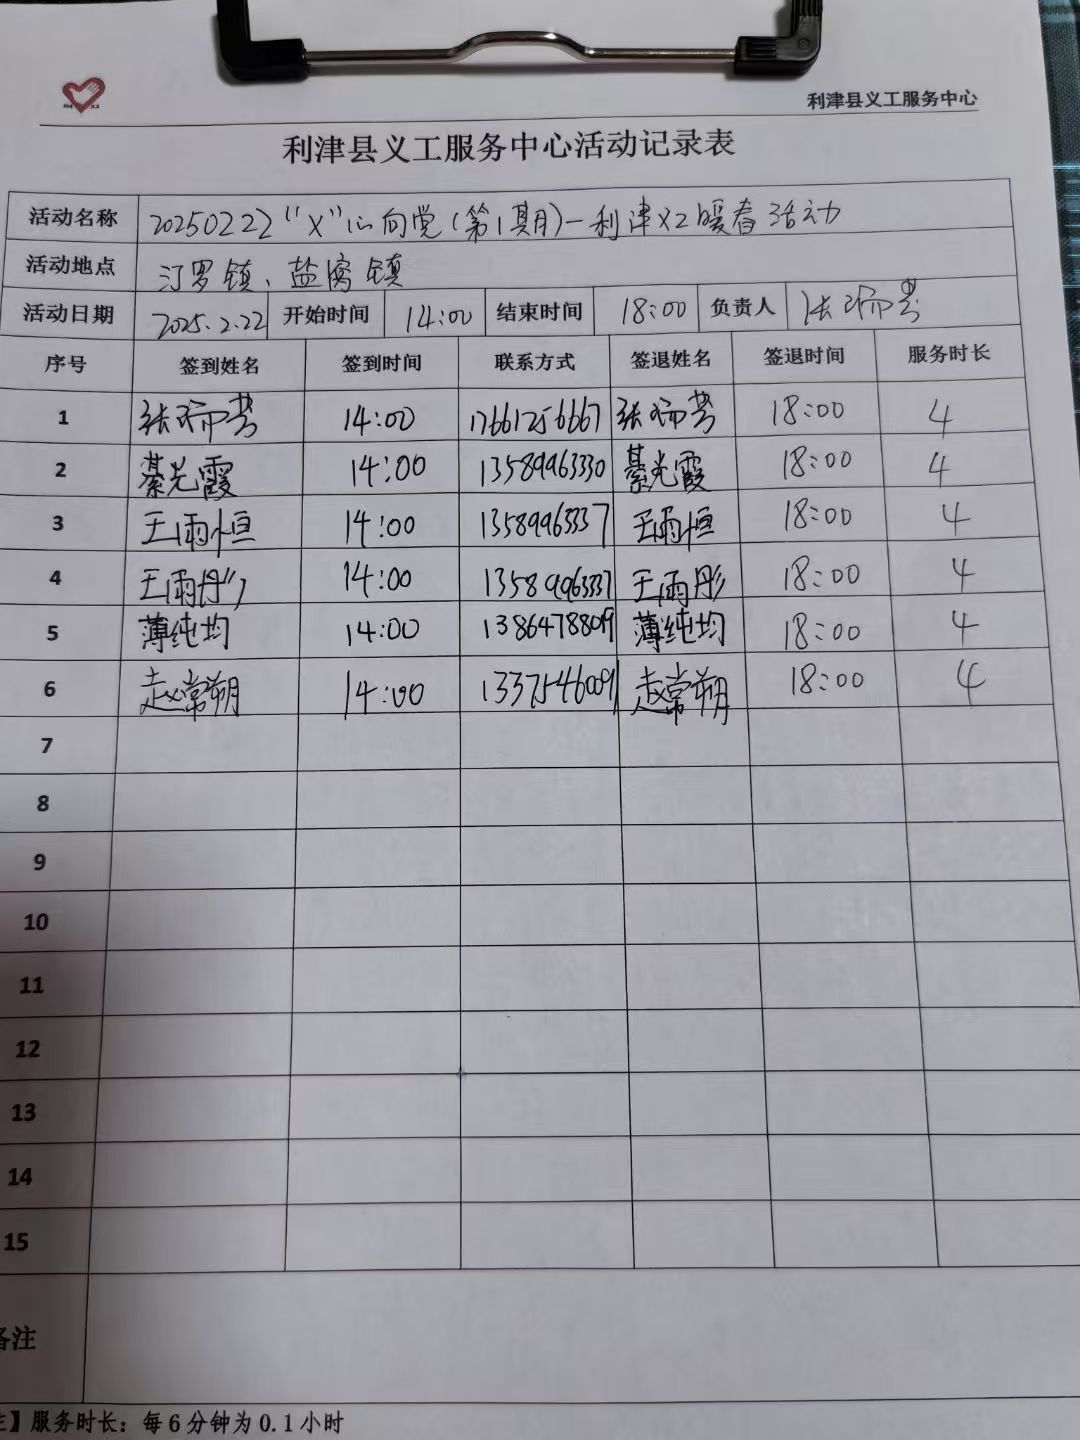 利津县义工服务中心
利津县义工服务中心活动记录表
活动名称 20250222“义”心向党(第1期)-利津义工暖春活动
活动地点 汀罗镇、盐窝镇
活动日期 2025.2.22 开始时间 14:00 结束时间 18:00 负责人 张瑞芳
序号 签到姓名 签到时间 联系方式 签退姓名 签退时间 服务时长
1 张瑞芳 14:00 17661256667 张瑞芳 18:00 4
2 綦光霞 14:00 13589963330 綦光霞 18:00 4
3 王雨恒 14:00 13589963337 王雨恒 18:00 4
4 王雨彤 14:00 13589963337 王雨彤 18:00 4
5 薄纯均 14:00 13864788019 薄纯均 18:00 4
6 赵常朔 14:00 13375460091 赵常朔 18:00 4
7
8
9
10
11
12
13
14
15
备注
注】服务时长：每6分钟为0.1小时